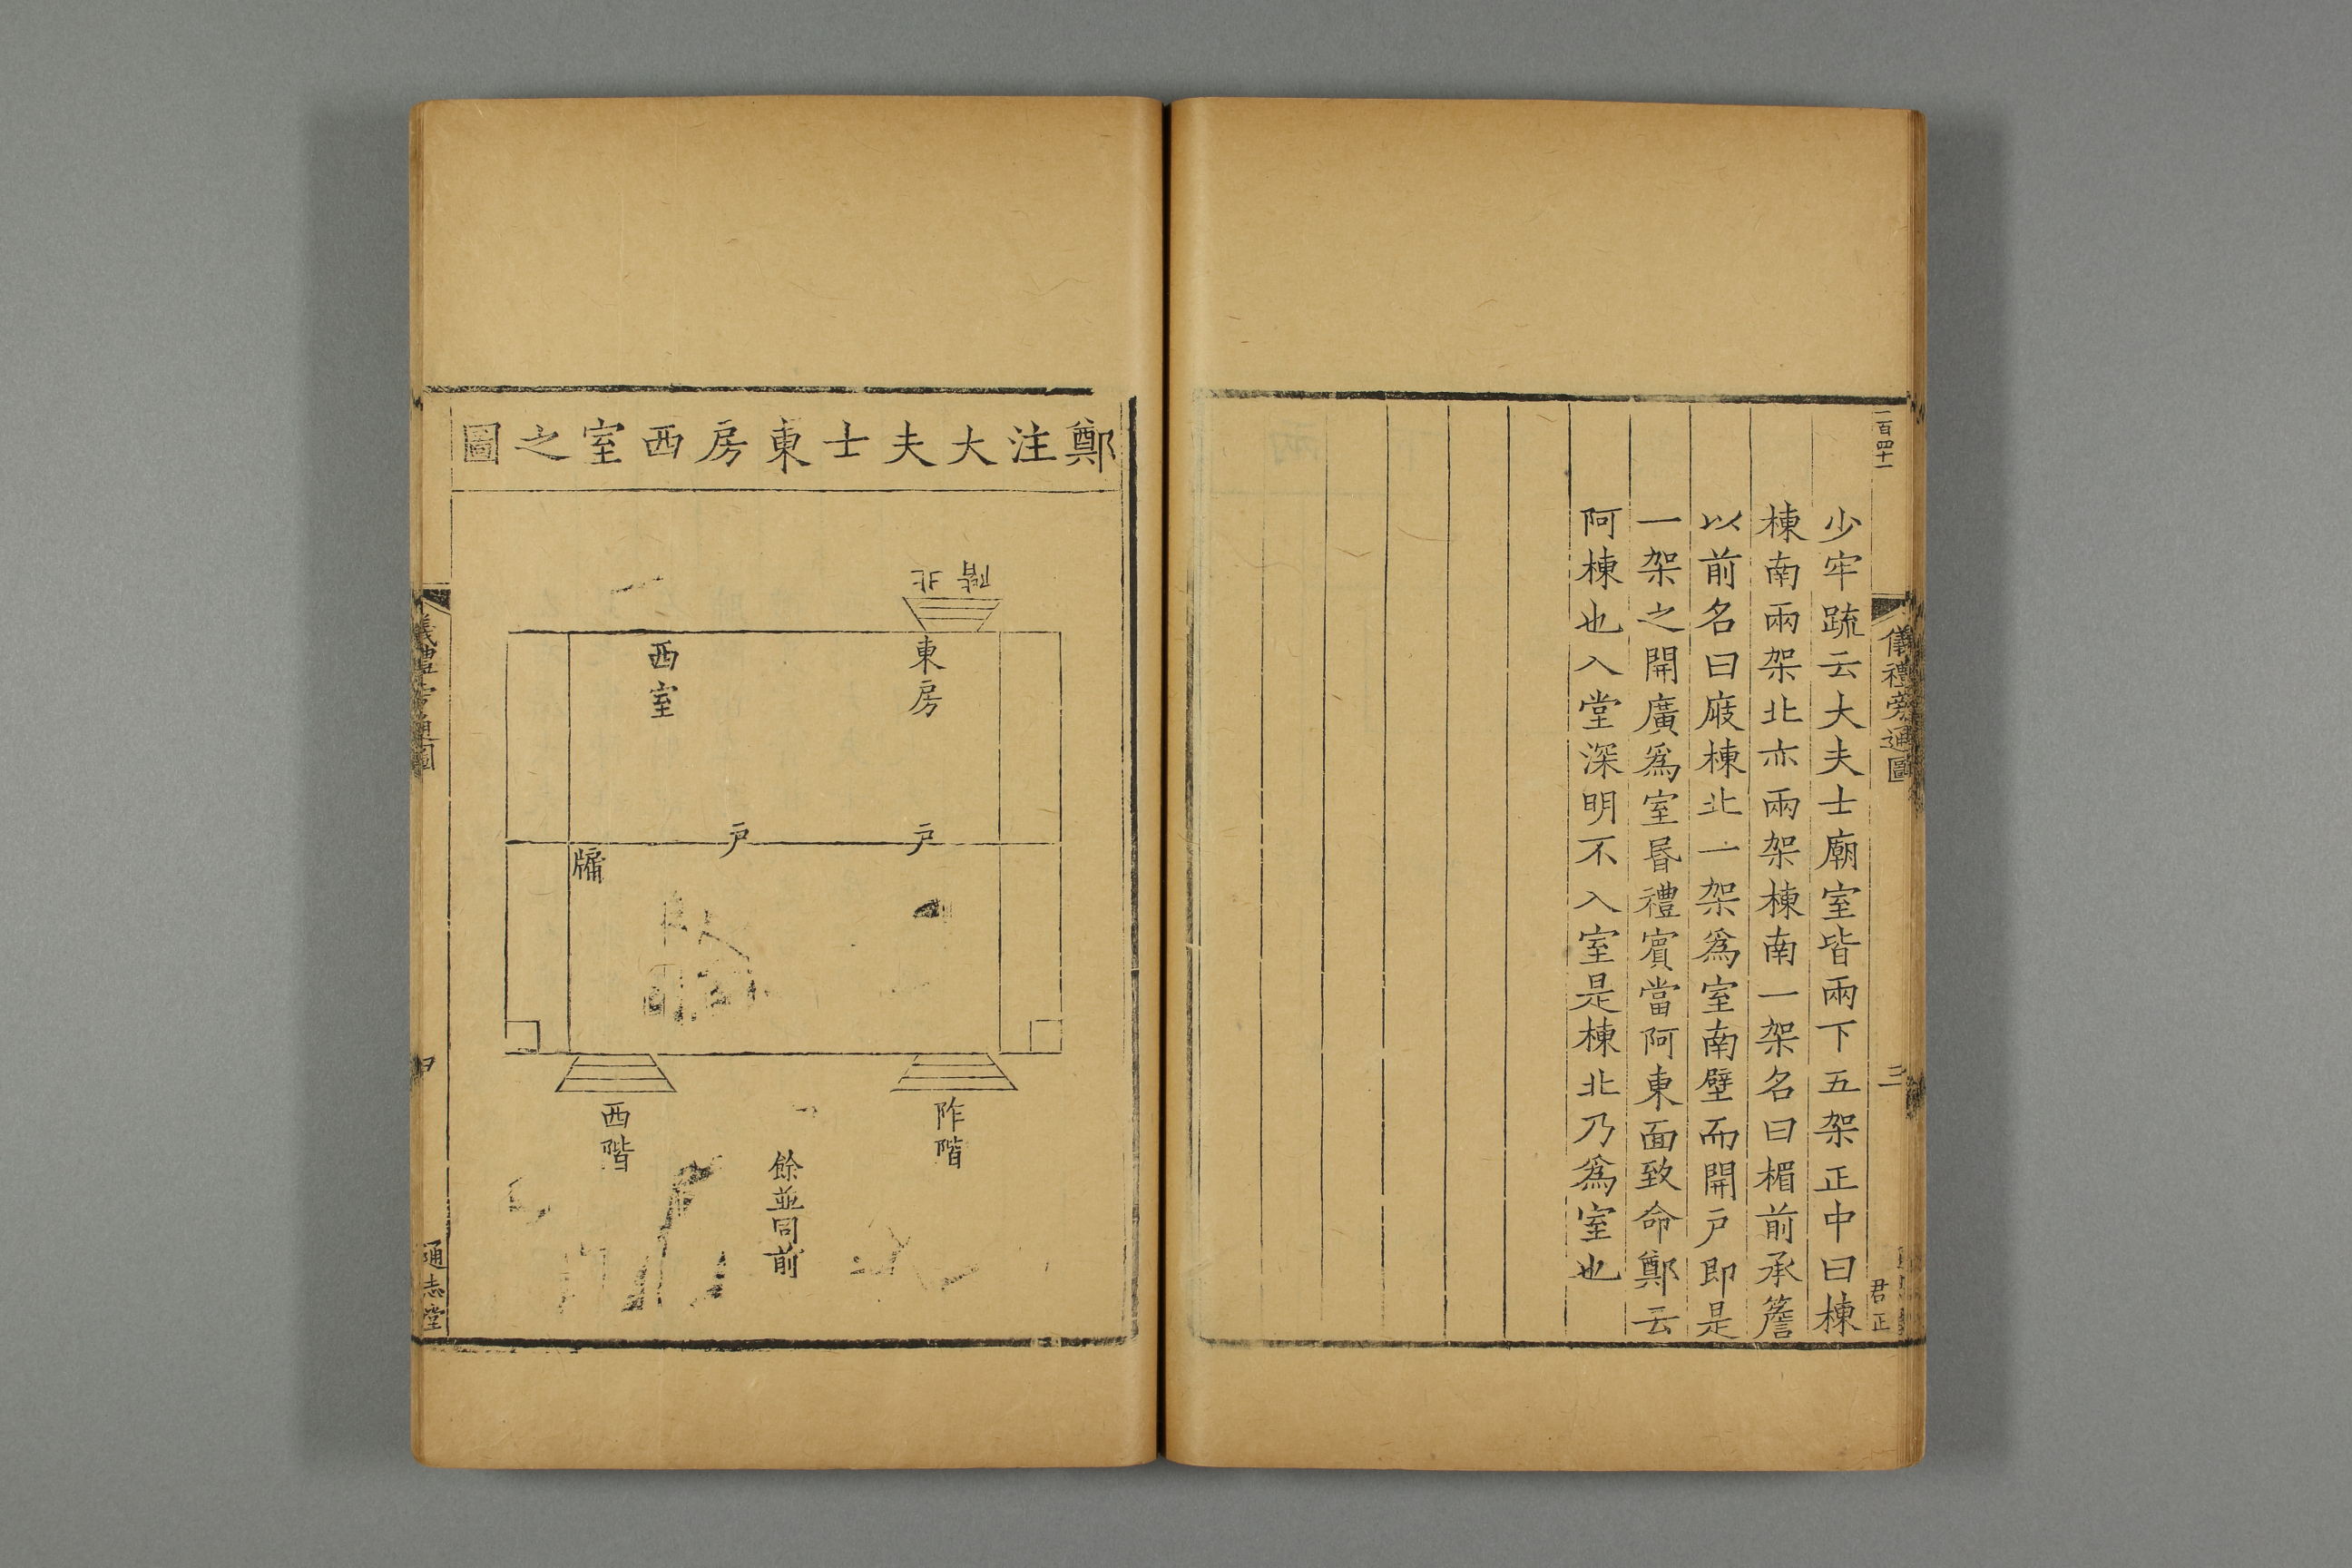 二百四十一
儀禮旁通圖
三
君正
少牢疏云大夫士廟室皆兩下五架正中曰棟
棟南兩架北亦兩架棟南一架名曰楣前承簷
以前名曰庪棟北一架爲室南壁而開戶即是
一架之開廣爲室昬禮賓當阿東面致命鄭云
阿棟也入堂深明不入室是棟北乃爲室也
鄭注大夫士東房西室之圖
北階
東房
西室
戶
戶
牖
阼階
西階
餘並同前
儀禮旁通圖
通志堂